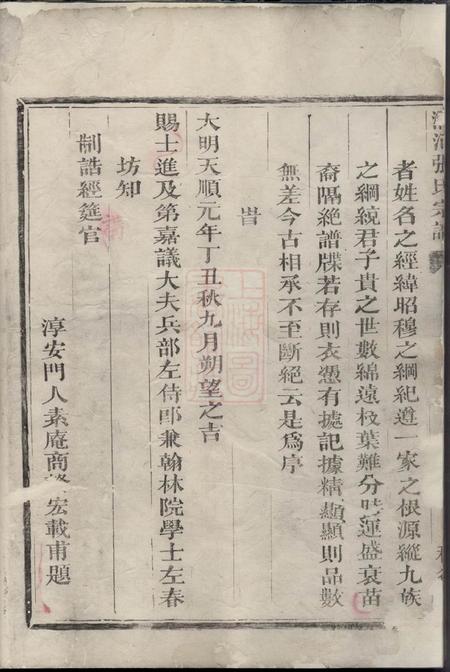 張氏宗譜
者姓名之經緯昭穆之綱紀遵一家之根源縱九族
之綱統君子貴之世數綿遠枝葉難分時運盛衰苗
裔隔絶譜牒若存則衣憑有據記據精顯則品數
無差今古相承不至斷絕云是爲序
旹
大明天順元年丁丑秋九月朔望之吉
賜士進及第嘉議大夫兵部左侍郎兼翰林院學士左春
坊知
制誥經筵官
淳安門人素庵商宏載甫題